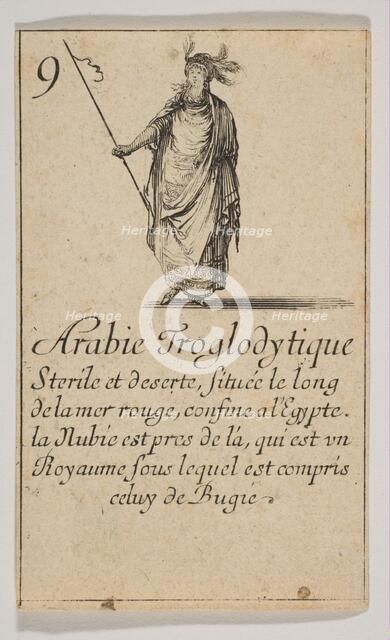 9
Arabie Troglodytique
Sterile et deserte, située le long
de la mer rouge, confine a l'Egypte.
la Nubie est pres de là, qui est vn
Royaume sous lequel est compris
celuy de Bugie
Heritage Heritage
Heritage Heritage
Heritage Heritage